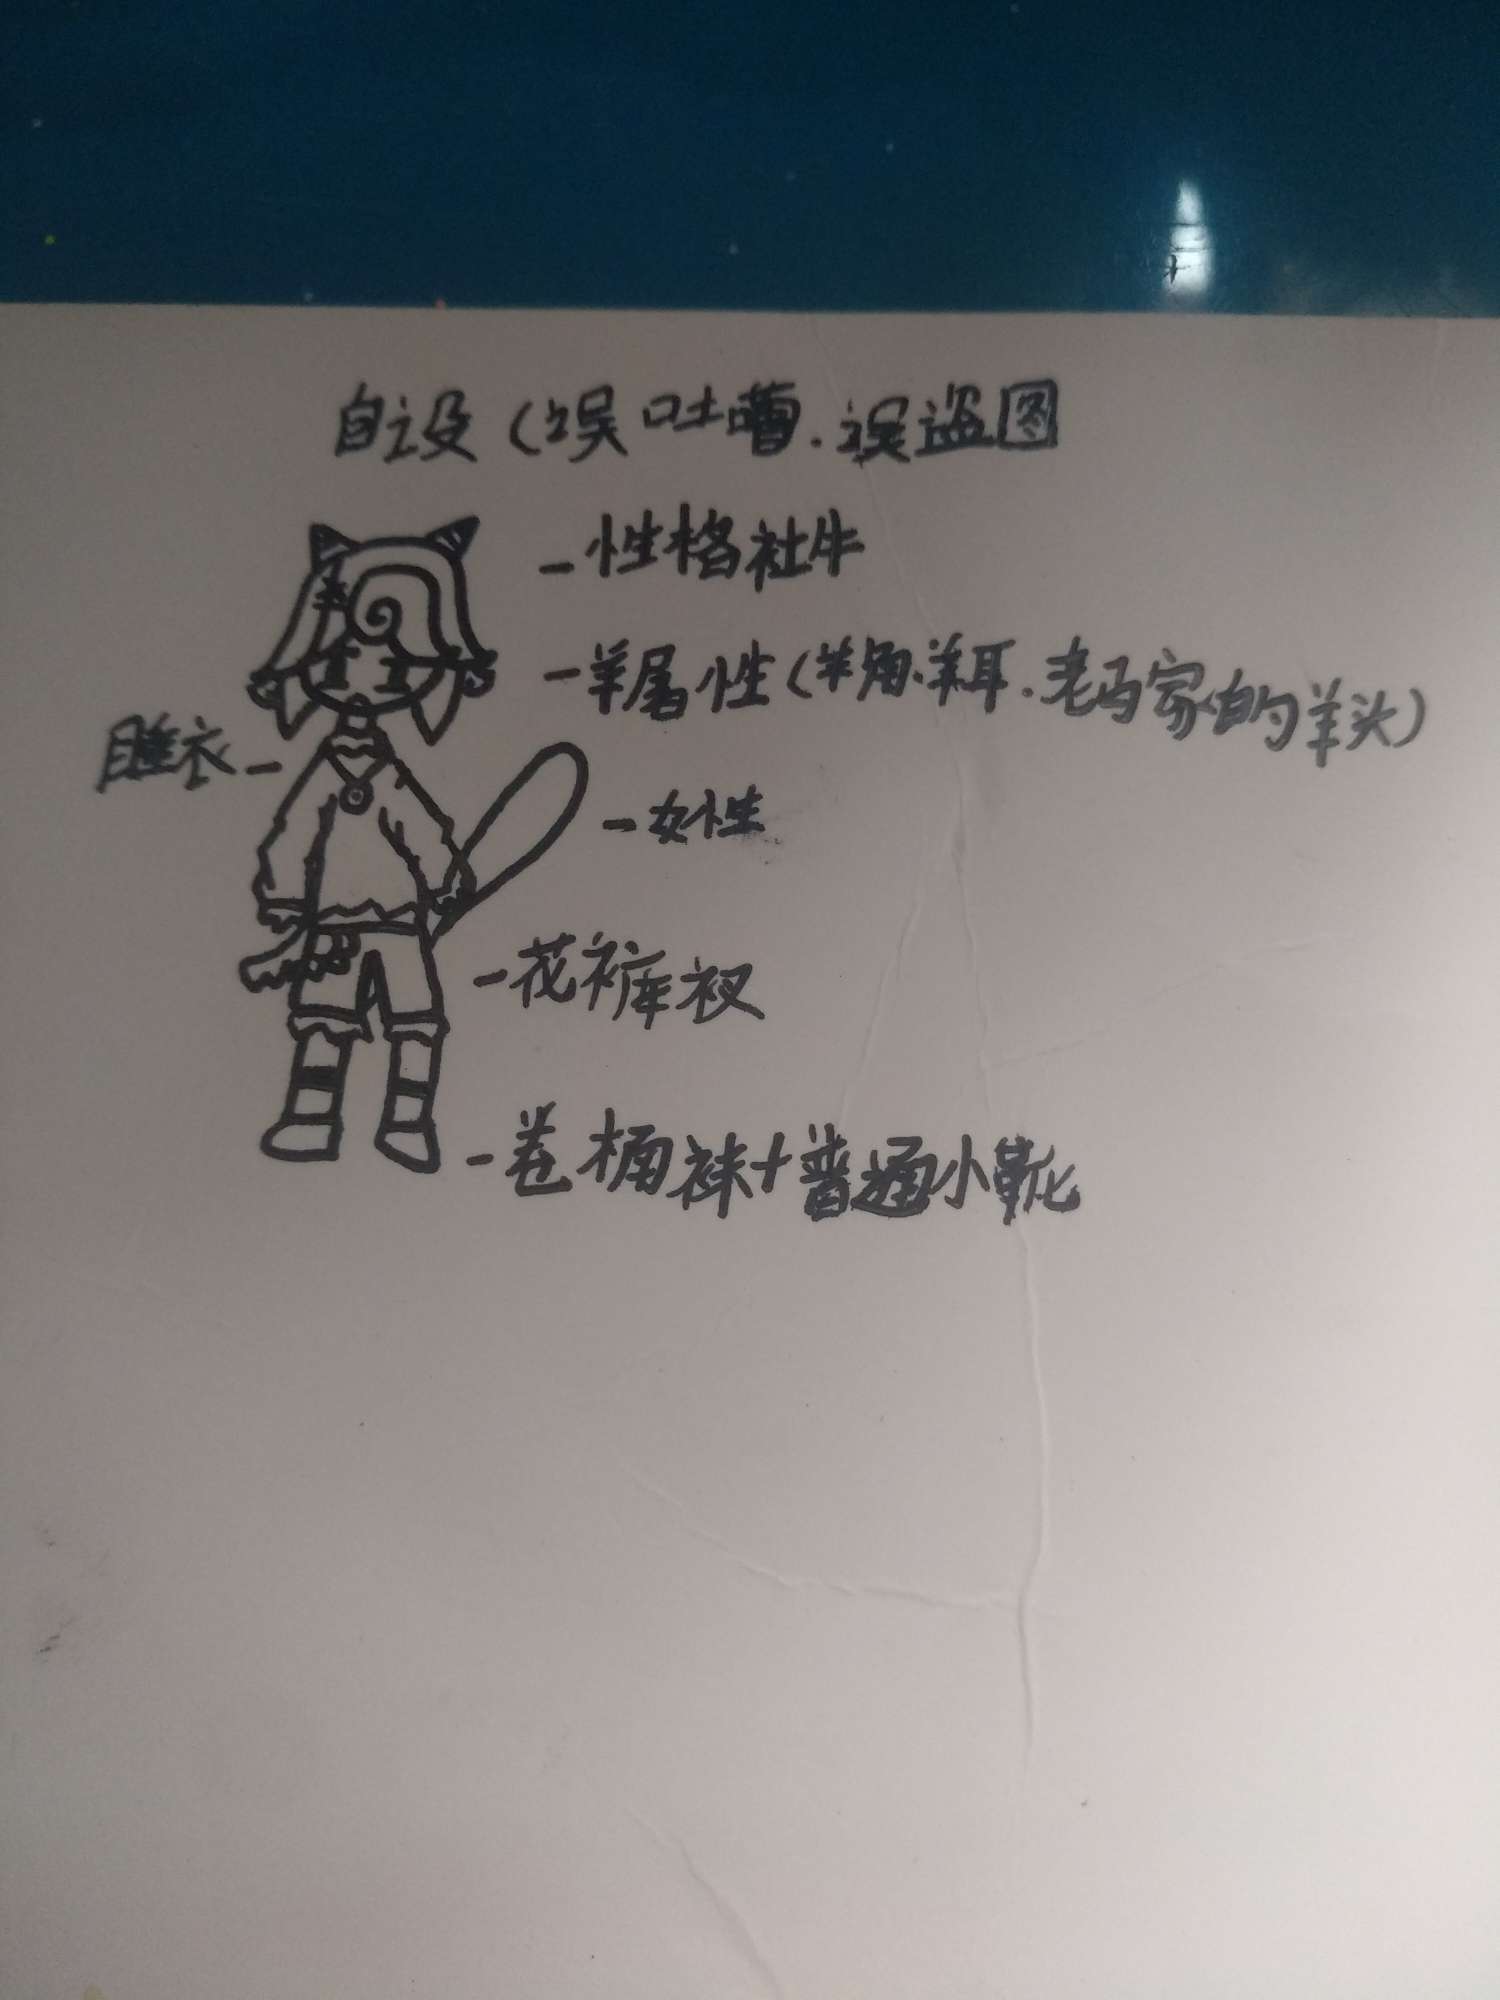 自设(误吐嘈.误盗图
-性格社牛
-羊属性(羊角、羊耳.老马家的羊头)
睡衣-
-女性
-花裤衩
-卷桶袜+普通小靴